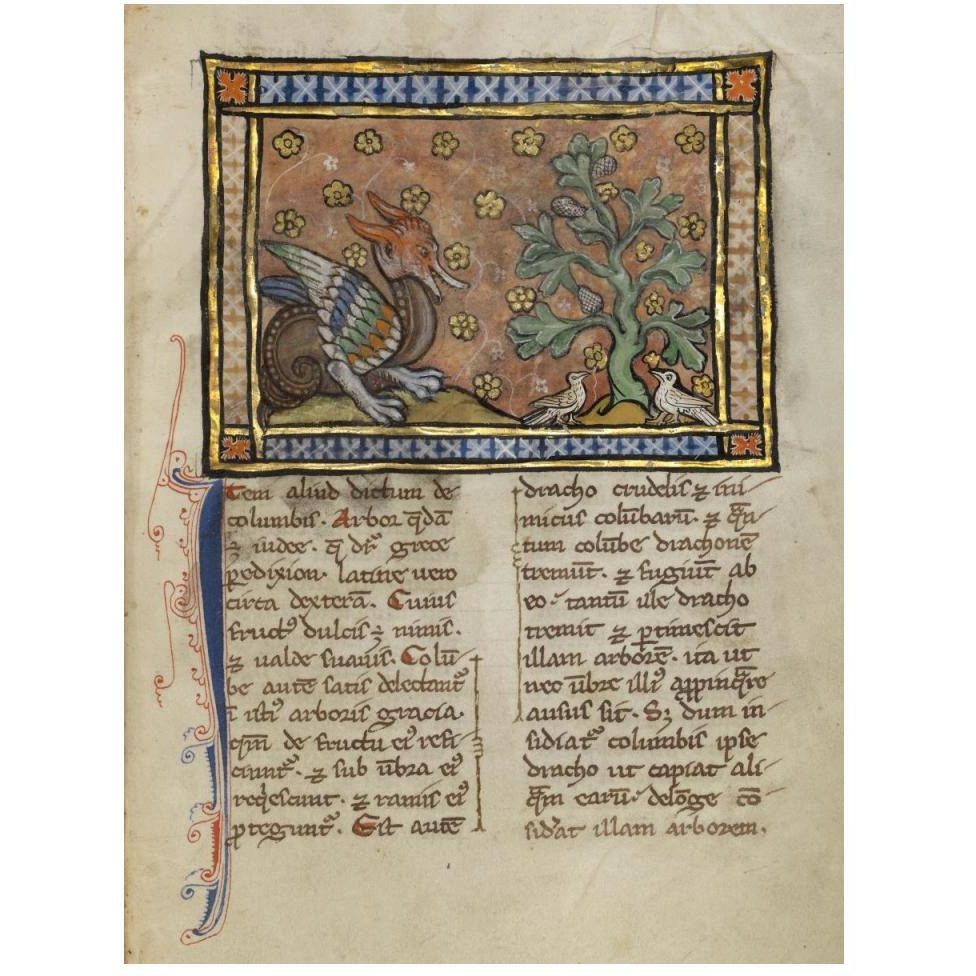 Item aliud dictum de
columbis. Arbor q̄dā
ꝫ indee. q̄ dr̄ grece
ꝑedixion. latine vero
circa dexterā. Cuius
fructꝰ dulcis ꝫ nimis.
ꝫ valde suavis. Colū
be autē satis delectant᷑
ī istiꝰ arboris gracia.
qm̄ de fructu eiꝰ refi
ciunt᷑. ꝫ sub ūbra eiꝰ
reqͥescunt. ꝫ ramis eiꝰ
ꝓtegunt᷑. Est autē
dracho crudelis ꝫ ini
micus colūbarū. ꝫ qᷓn
tum colūbe drachonē
tremūt. ꝫ fugiūt ab
eo. tantū ille dracho
tremit ꝫ ꝑtimescit
illam arborē. ita ut
nec ūbre illiꝰ appinqᷓre
ausus sit. Sꝫ dum in
sidiat᷑ columbis ipse
dracho ut capiat ali
qᷓm earū. delōge cō
sid̓at illam arborem.